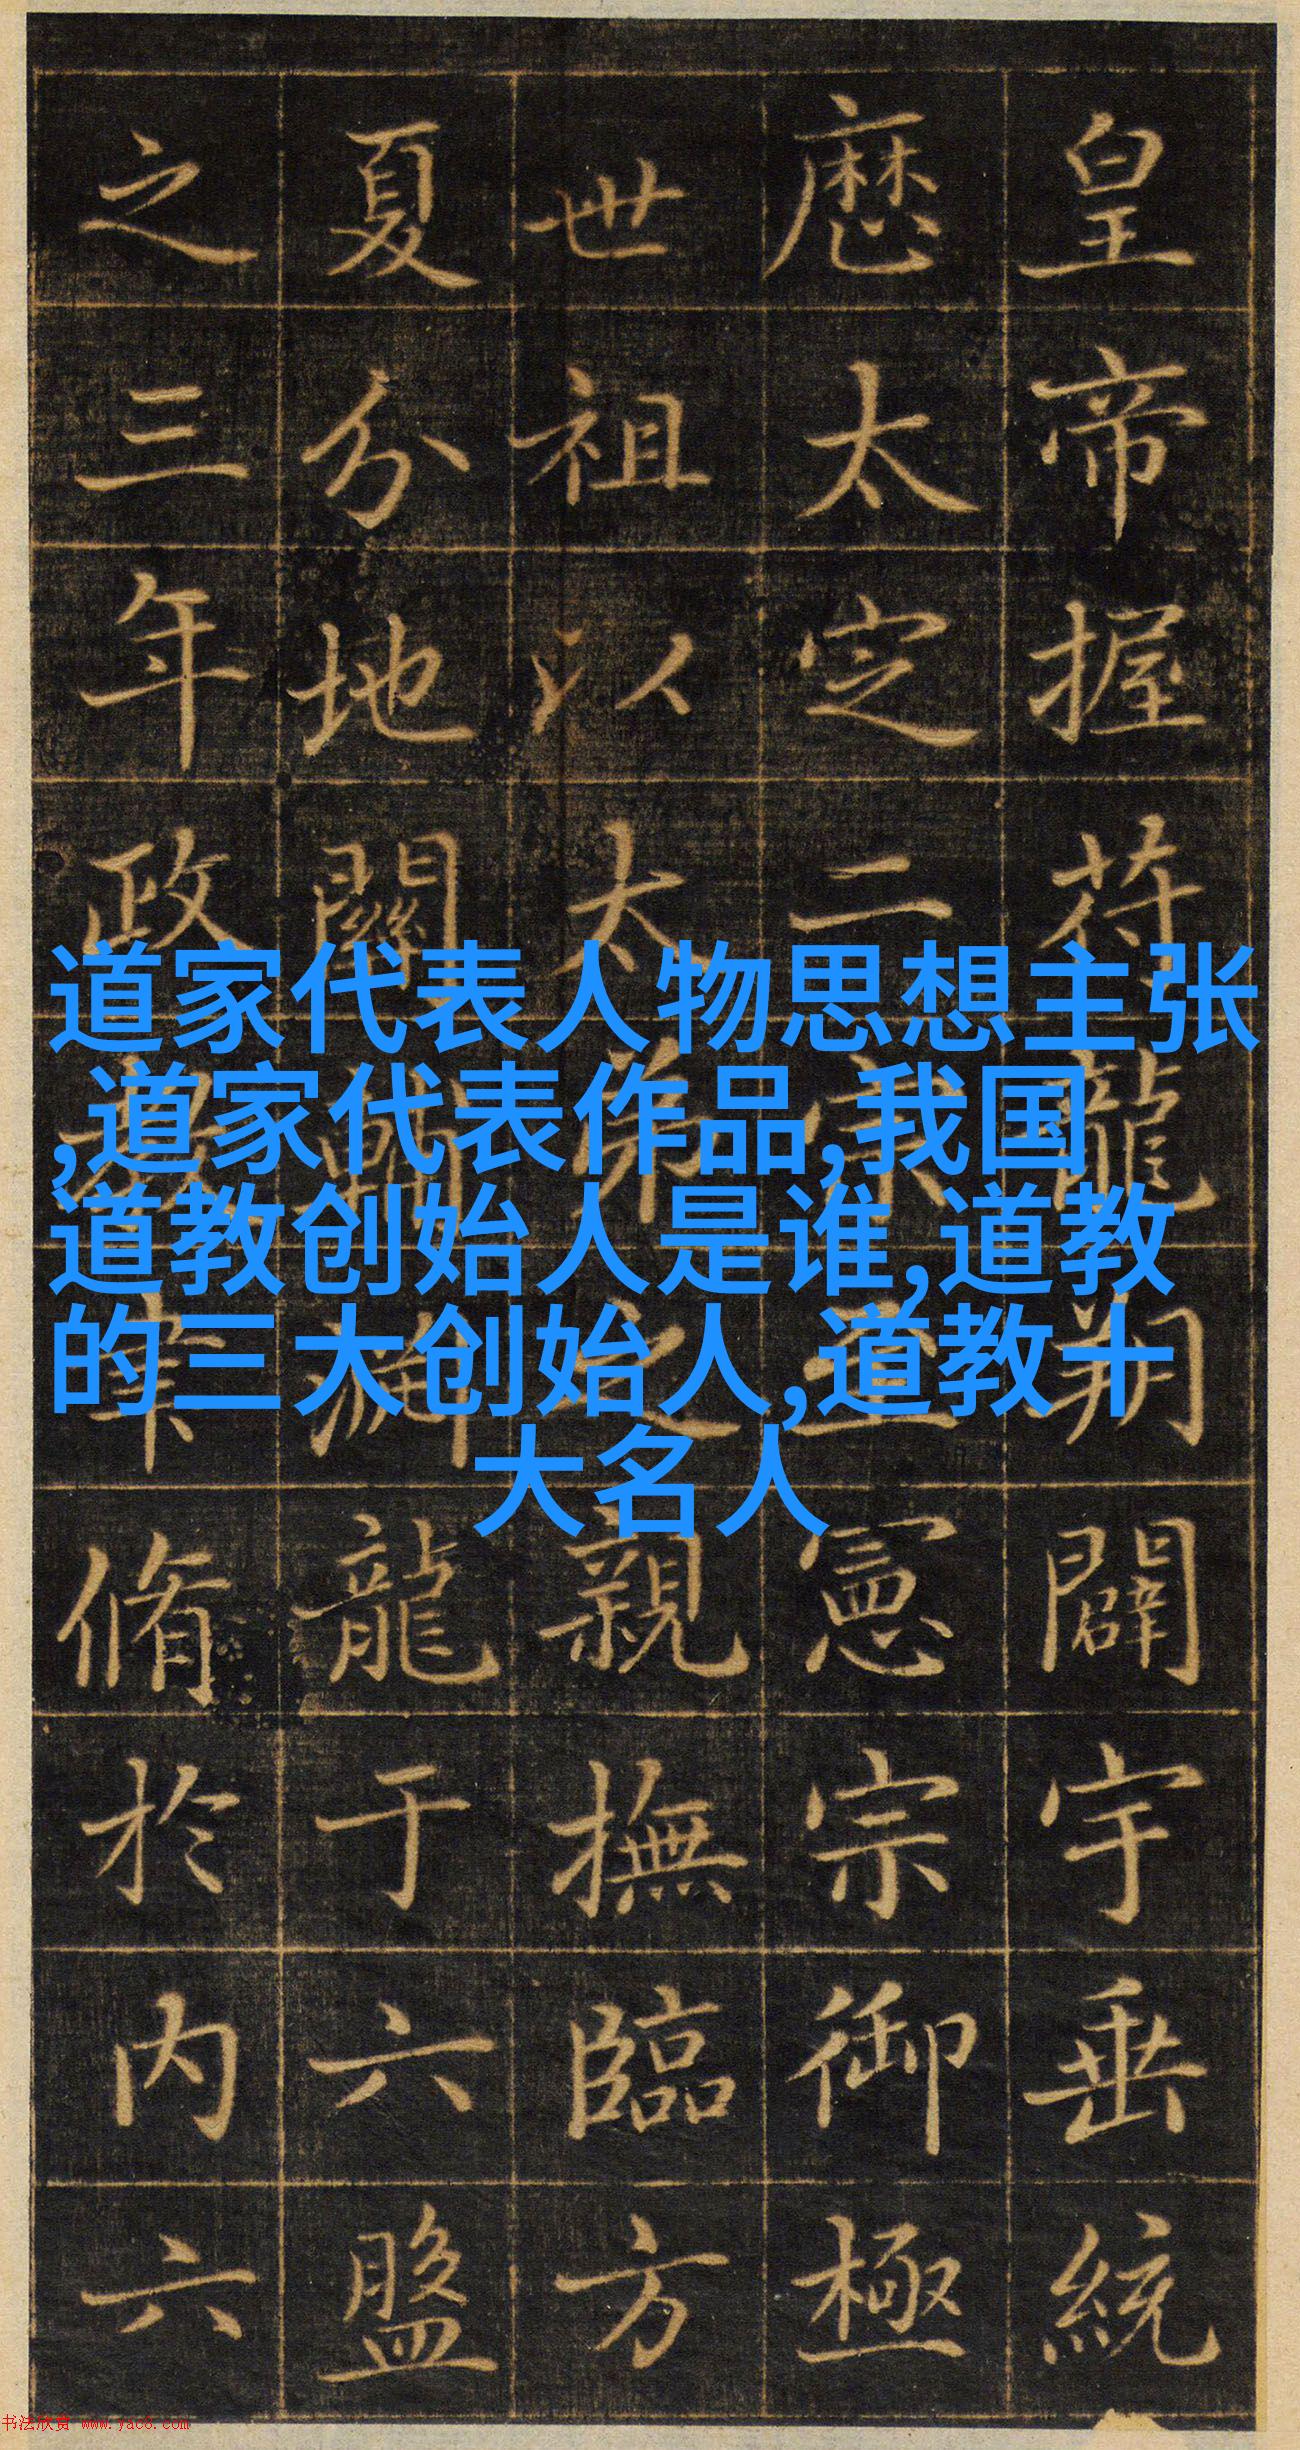 道家代表人物思想主张
,道家代表作品,我国
道教创始人是谁,道教
的三大创始人,道教十
大名人
皇帝握符龍朔闢宇垂統
太定二宗至憲宗御極
世祖以太弟之親撫臨方
夏分地關龍于六盤
之三年政務聿脩於内六
书法欣赏 www.yac8.com